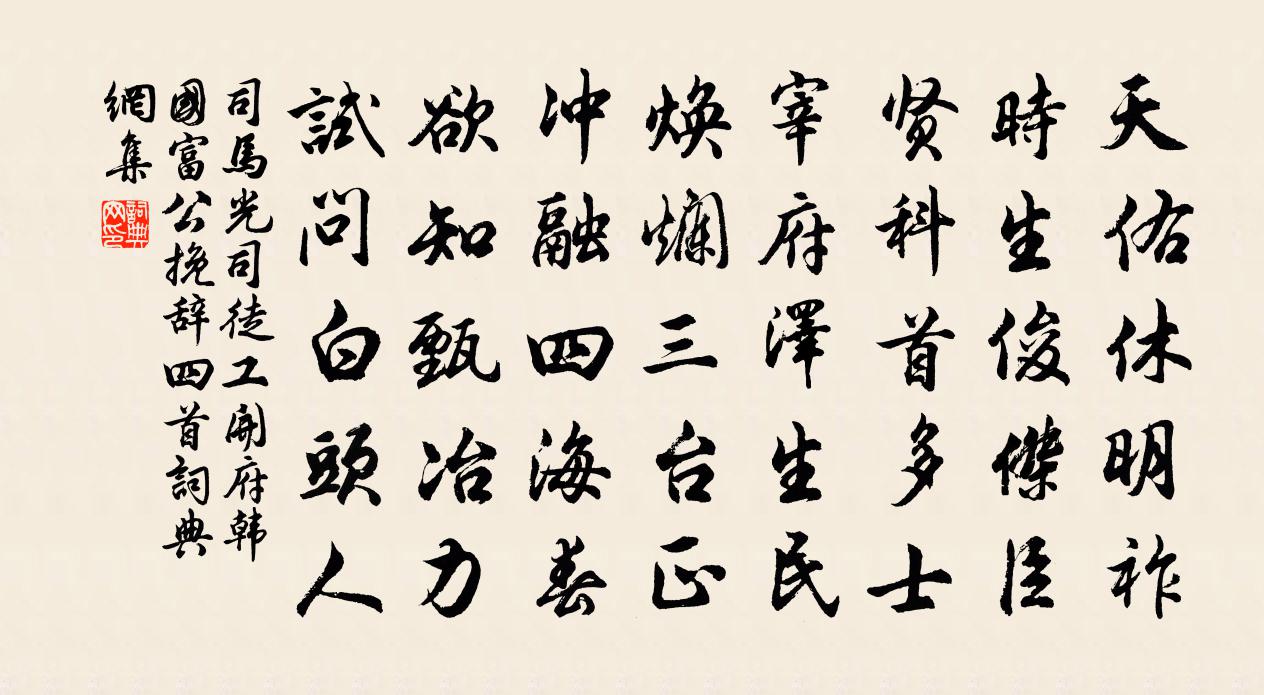 天佑休明祚
時生俊傑臣
贤科首多士
宰府澤生民
煥爛三台正
冲融四海春
欲知甄冶力
試問白頭人
司馬光司徒工開府韩
國富公挽辞四首詞典
網集
詞典網印